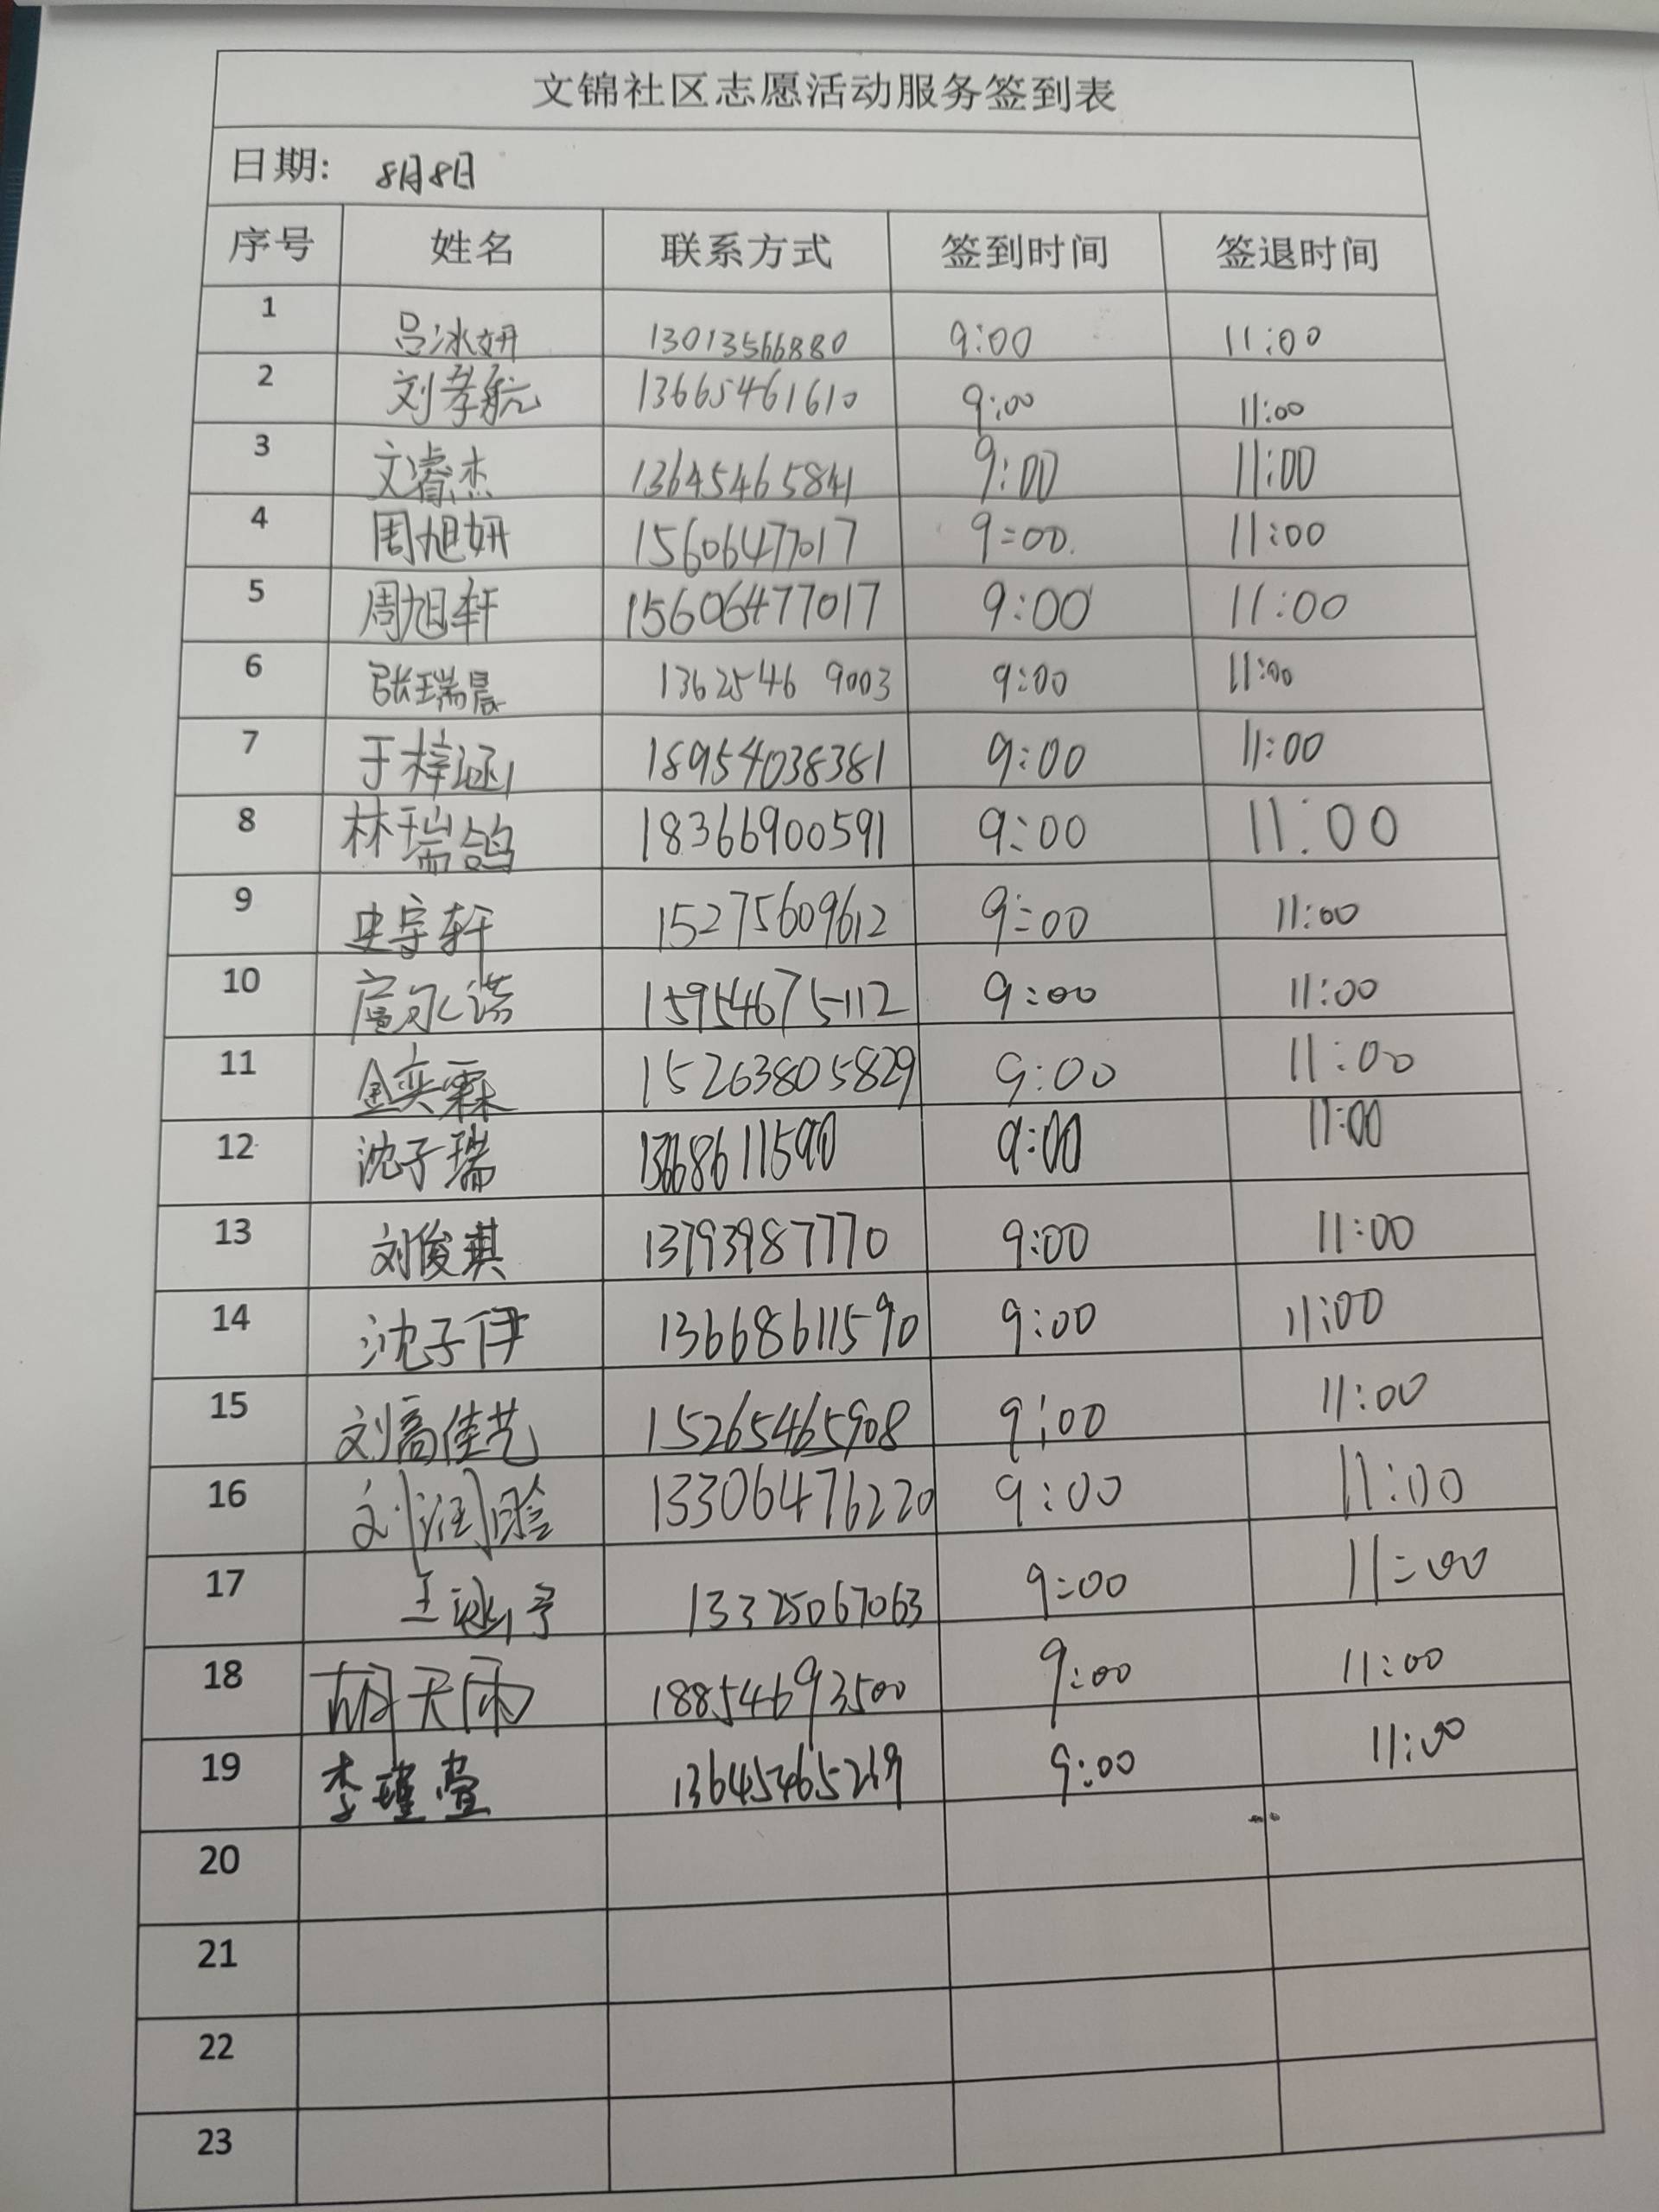 文锦社区志愿活动服务签到表
日期: 8月8日
序号 姓名 联系方式 签到时间 签退时间
1 吕冰妍 13013566880 9:00 11:00
2 刘孝航 13665461610 9:00 11:00
3 文睿杰 13645465841 9:00 11:00
4 周旭妍 15606477017 9:00 11:00
5 周旭轩 15606477017 9:00 11:00
6 张瑞晨 13625469003 9:00 11:00
7 于梓涵 18954038381 9:00 11:00
8 林瑞鸽 18366900591 9:00 11:00
9 史宇轩 15275609612 9:00 11:00
10 15954675112 9:00 11:00
11 金奕霖 15263805829 9:00 11:00
12 沈子瑞 13668611590 9:00 11:00
13 刘俊琪 13793987770 9:00 11:00
14 沈子伊 13668611590 9:00 11:00
15 刘高佳艺 15265465908 9:00 11:00
16 刘润晗 13306476220 9:00 11:00
17 13325067063 9:00 11:00
18 胡天雨 18854693500 9:00 11:00
19 李瑾萱 9:00 11:00
20
21
22
23